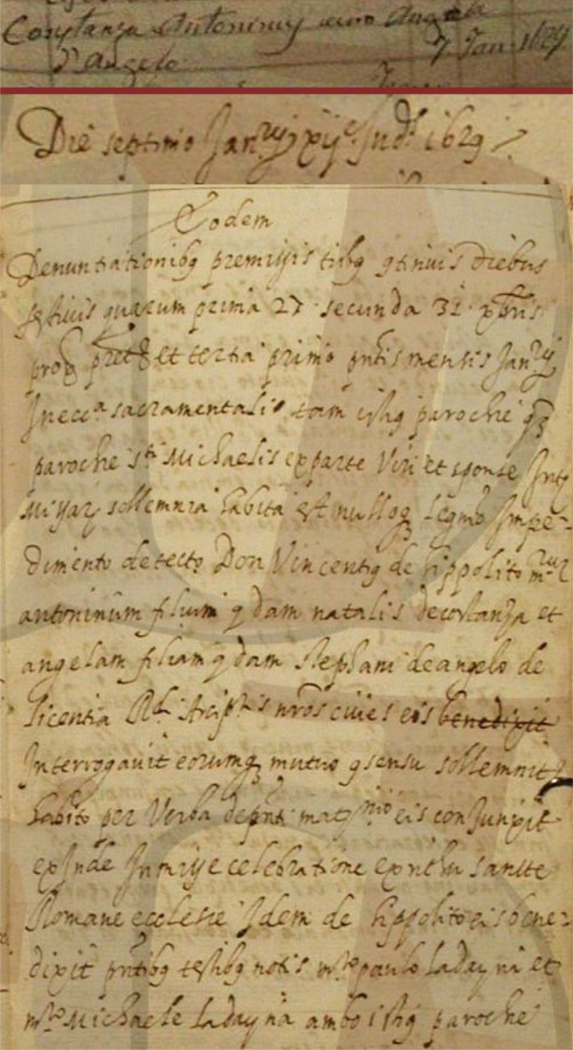 Costanza Antoninus cum Angela
D'Angelo 7 Jan. 1629
Die septimo Jan.rij xij Ind. 1629
Eodem
Denuntiationibq premissis tribq gtinuis diebus
festivis quarum prima 27 secunda 31 xbris
prox. pret. et tertia primo pntis mensis Jan.rij
In ecc.a sacramentali tam istiq paroche q3
paroche s.ti Michaelis ex parte Viri et sponse Int3
Missar3 sollemnia habita est nulloq3 legmo Impe-
dimento detecto Don Vincentiq de hippolito
antoninum filium qdam natalis de costanza et
angelam filiam qdam stephani de angelo de
licentia R.di Arcip.tis nros cives eos benedixit
Interrogavit eorumq3 mutuo gsensu sollemnit.
habito per Verba de pnti mat.nio eis conJunxit
exInde In misse celebratione ex ritu sancte
Romane ecclesie Idem de hippolito eis bene-
dixit pntibq testibq notis m.ro paulo ladayna et
m.ro Michaele ladayna ambo istiq paroche